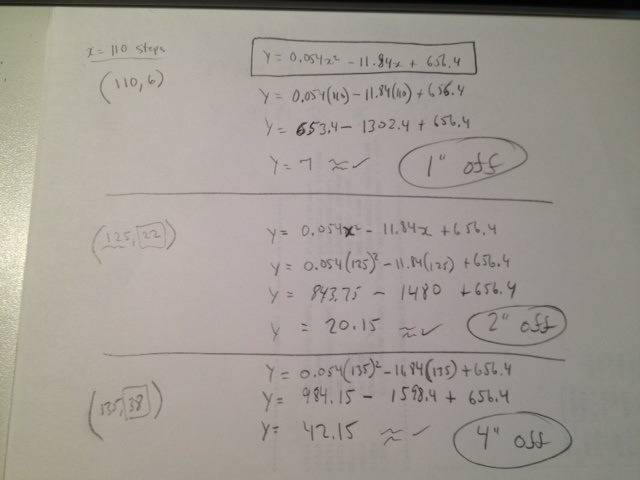 x = 110 steps
y = 0.054x² - 11.84x + 656.4
(110,6)
y = 0.054(110) - 11.84(110) + 656.4
y = 653.4 - 1302.4 + 656.4
y = 7 ≈ ✓
1" off
(125, 22)
y = 0.054x² - 11.84x + 656.4
y = 0.054(125)² - 11.84(125) + 656.4
y = 843.75 - 1480 + 656.4
y = 20.15 ≈ ✓
2" off
(135, 38)
y = 0.054(135)² - 1684(135) + 656.4
y = 984.15 - 1598.4 + 656.4
y = 42.15 ≈ ✓
4" off